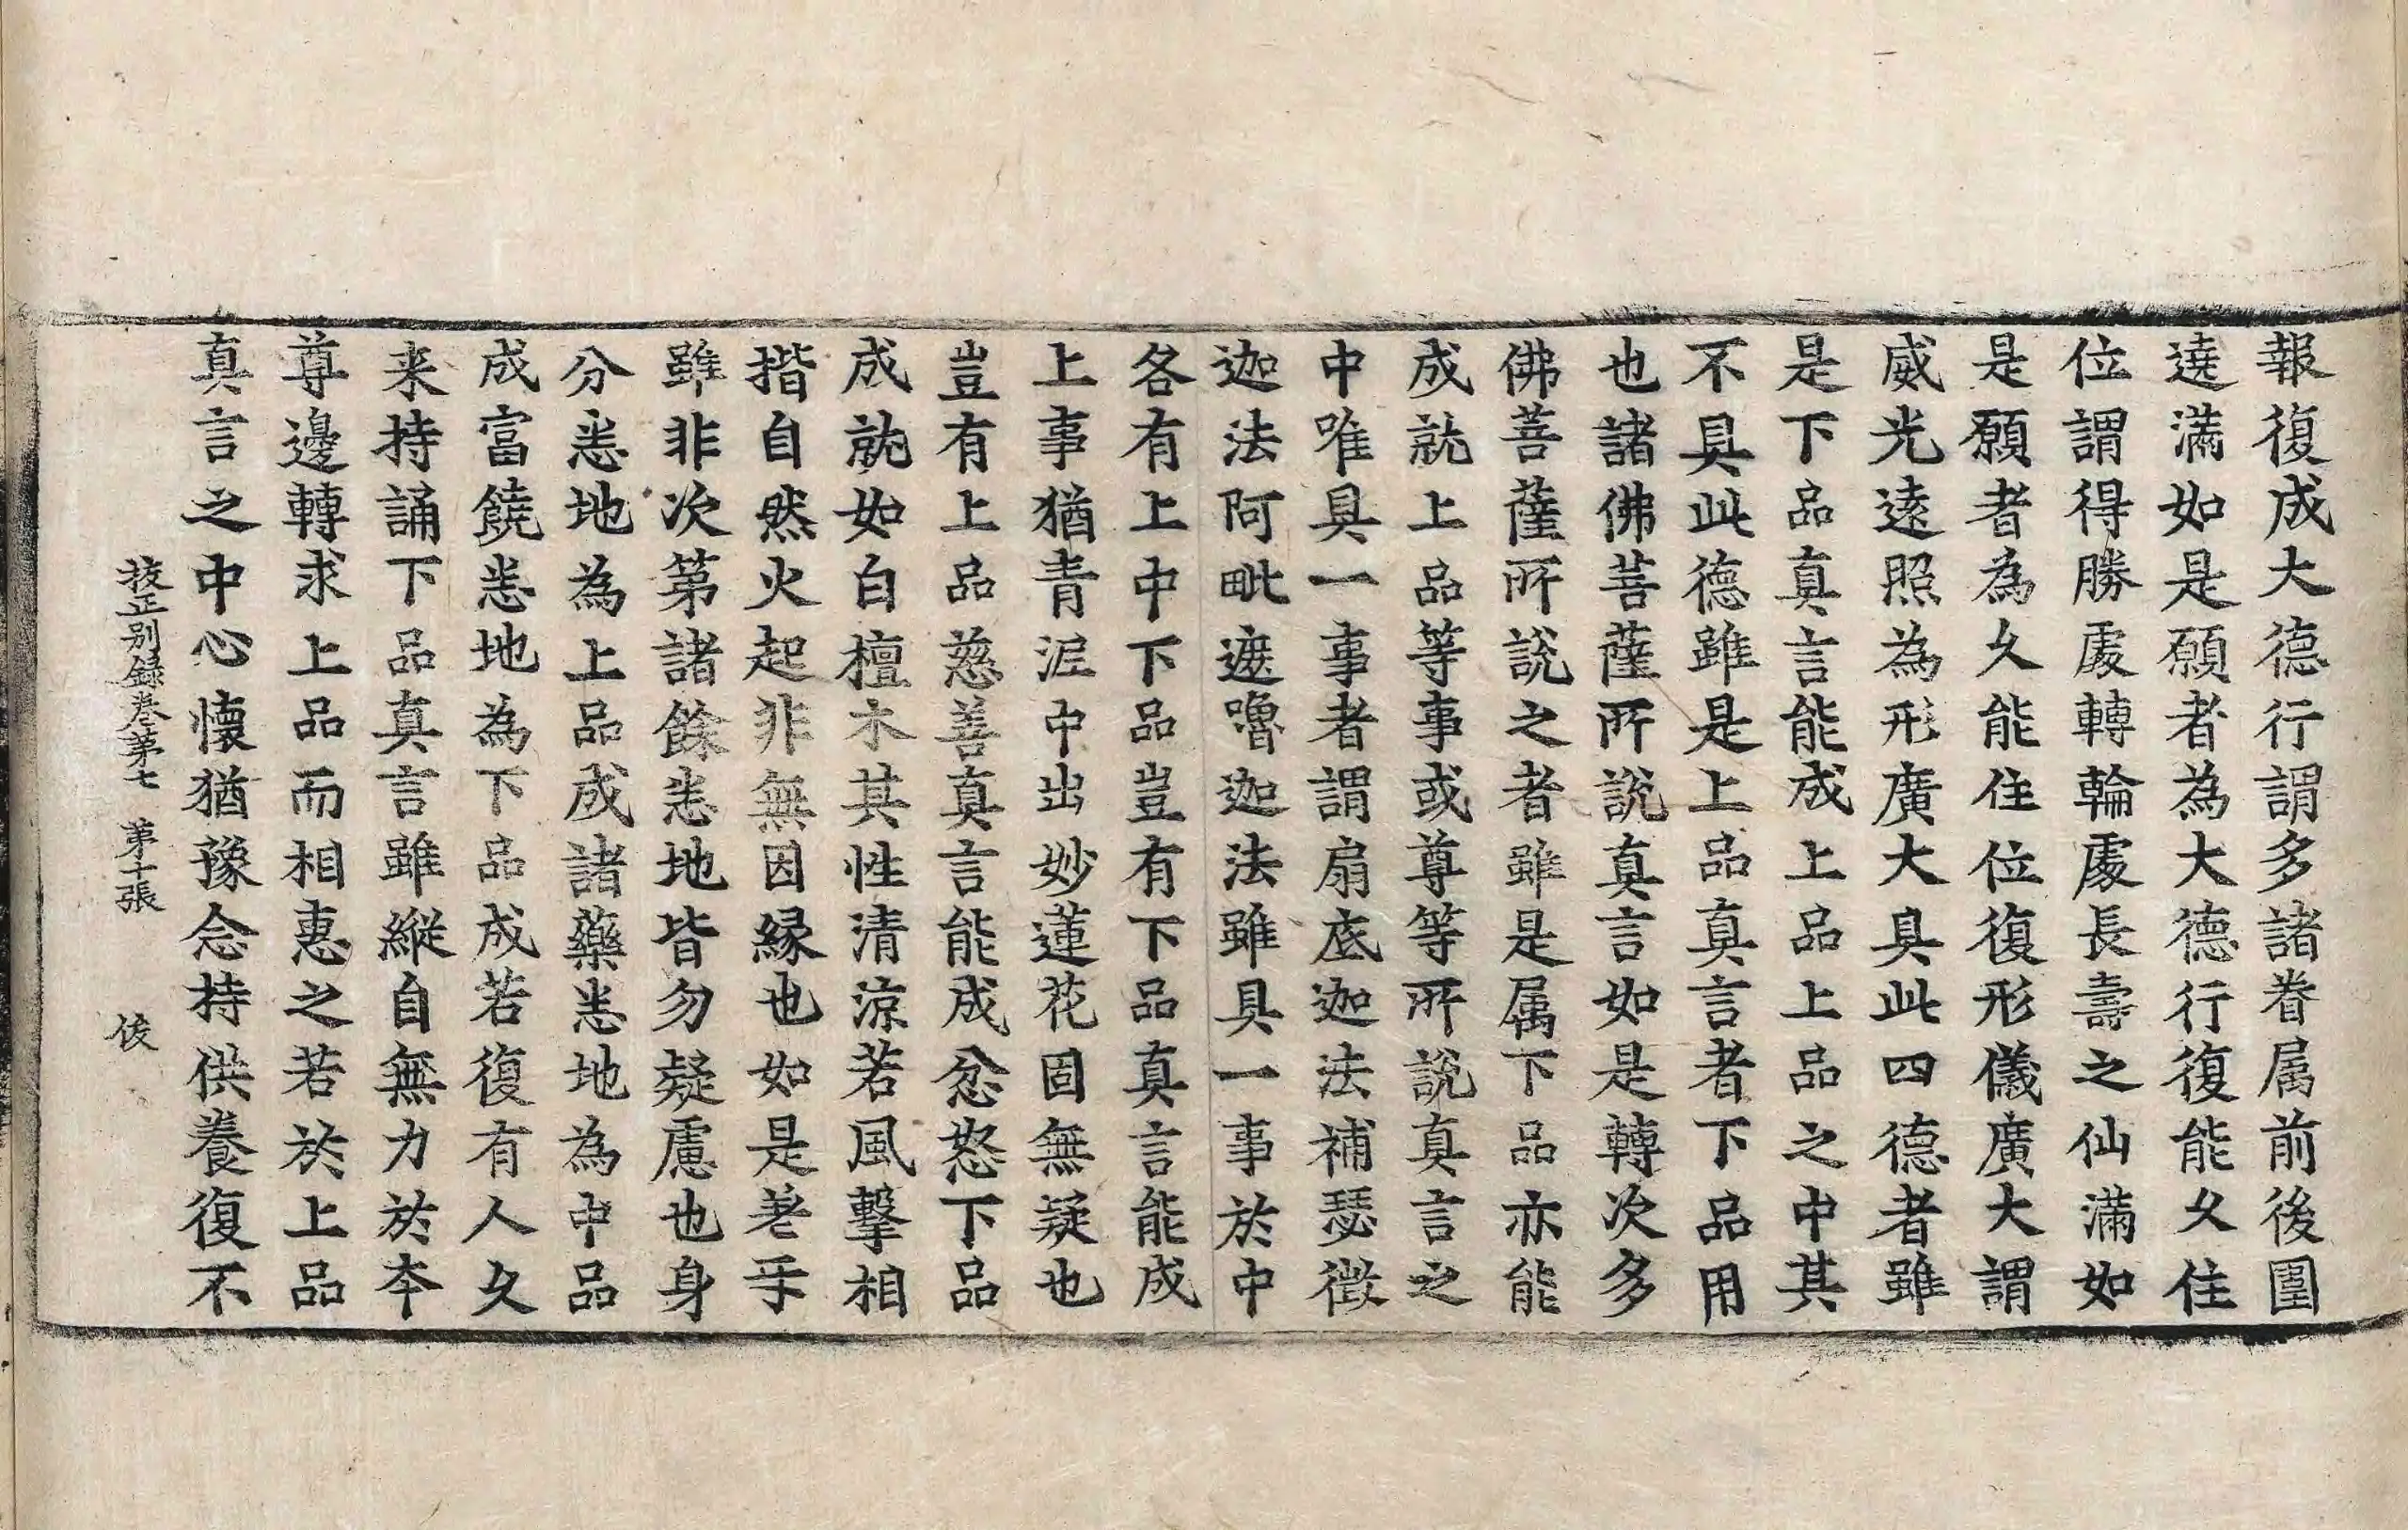 報復成大德行謂多諸眷属前後圍
遶滿如是願者為大德行復能久住
位謂得勝處轉輪處長壽之仙滿如
是願者為久能住位復形儀廣大謂
威光遠照為形廣大具此四德者雖
是下品真言能成上品上品之中其
不具此德雖是上品真言者下品用
也諸佛菩薩所說真言如是轉次多
佛菩薩所說之者雖是属下品亦能
成就上品等事或尊等所說真言之
中唯具一事者謂扇底迦法補瑟徵
迦法阿毗遮嚕迦法雖具一事於中
各有上中下品豈有下品真言能成
上事猶青泥中出妙蓮花固無疑也
豈有上品慈善真言能成忿怒下品
成就如白檀木其性清涼若風擊相
揩自然火起非無因緣也如是差手
雖非次第諸餘悉地皆勿疑慮也身
分悉地為上品成諸藥悉地為中品
成富饒悉地為下品成若復有人久
来持誦下品真言雖縱自無力於本
尊邊轉求上品而相惠之若於上品
真言之中心懷猶豫念持供養復不
挍正別録卷第七 第十張 俊